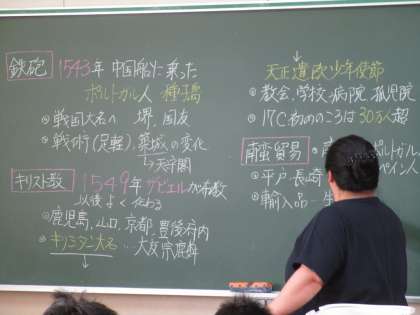 鉄砲 1543年 中国船に乗った
ポルトガル人 種子島
• 戦国大名へ 堺、国友
• 戦術(足軽)、築城の変化
↳天守閣
キリスト教 1549年 ザビエルが布教
以後よく伝わる
• 鹿児島、山口、京都、豊後府内
• キリシタン大名…大友宗麟
↓
↓
天正遣欧少年使節
• 教会、学校、病院、孤児院
• 17C初めのころは30万人超
南蛮貿易 • ポルトガル
ペイン人
• 平戸、長崎
• 輸入品…生